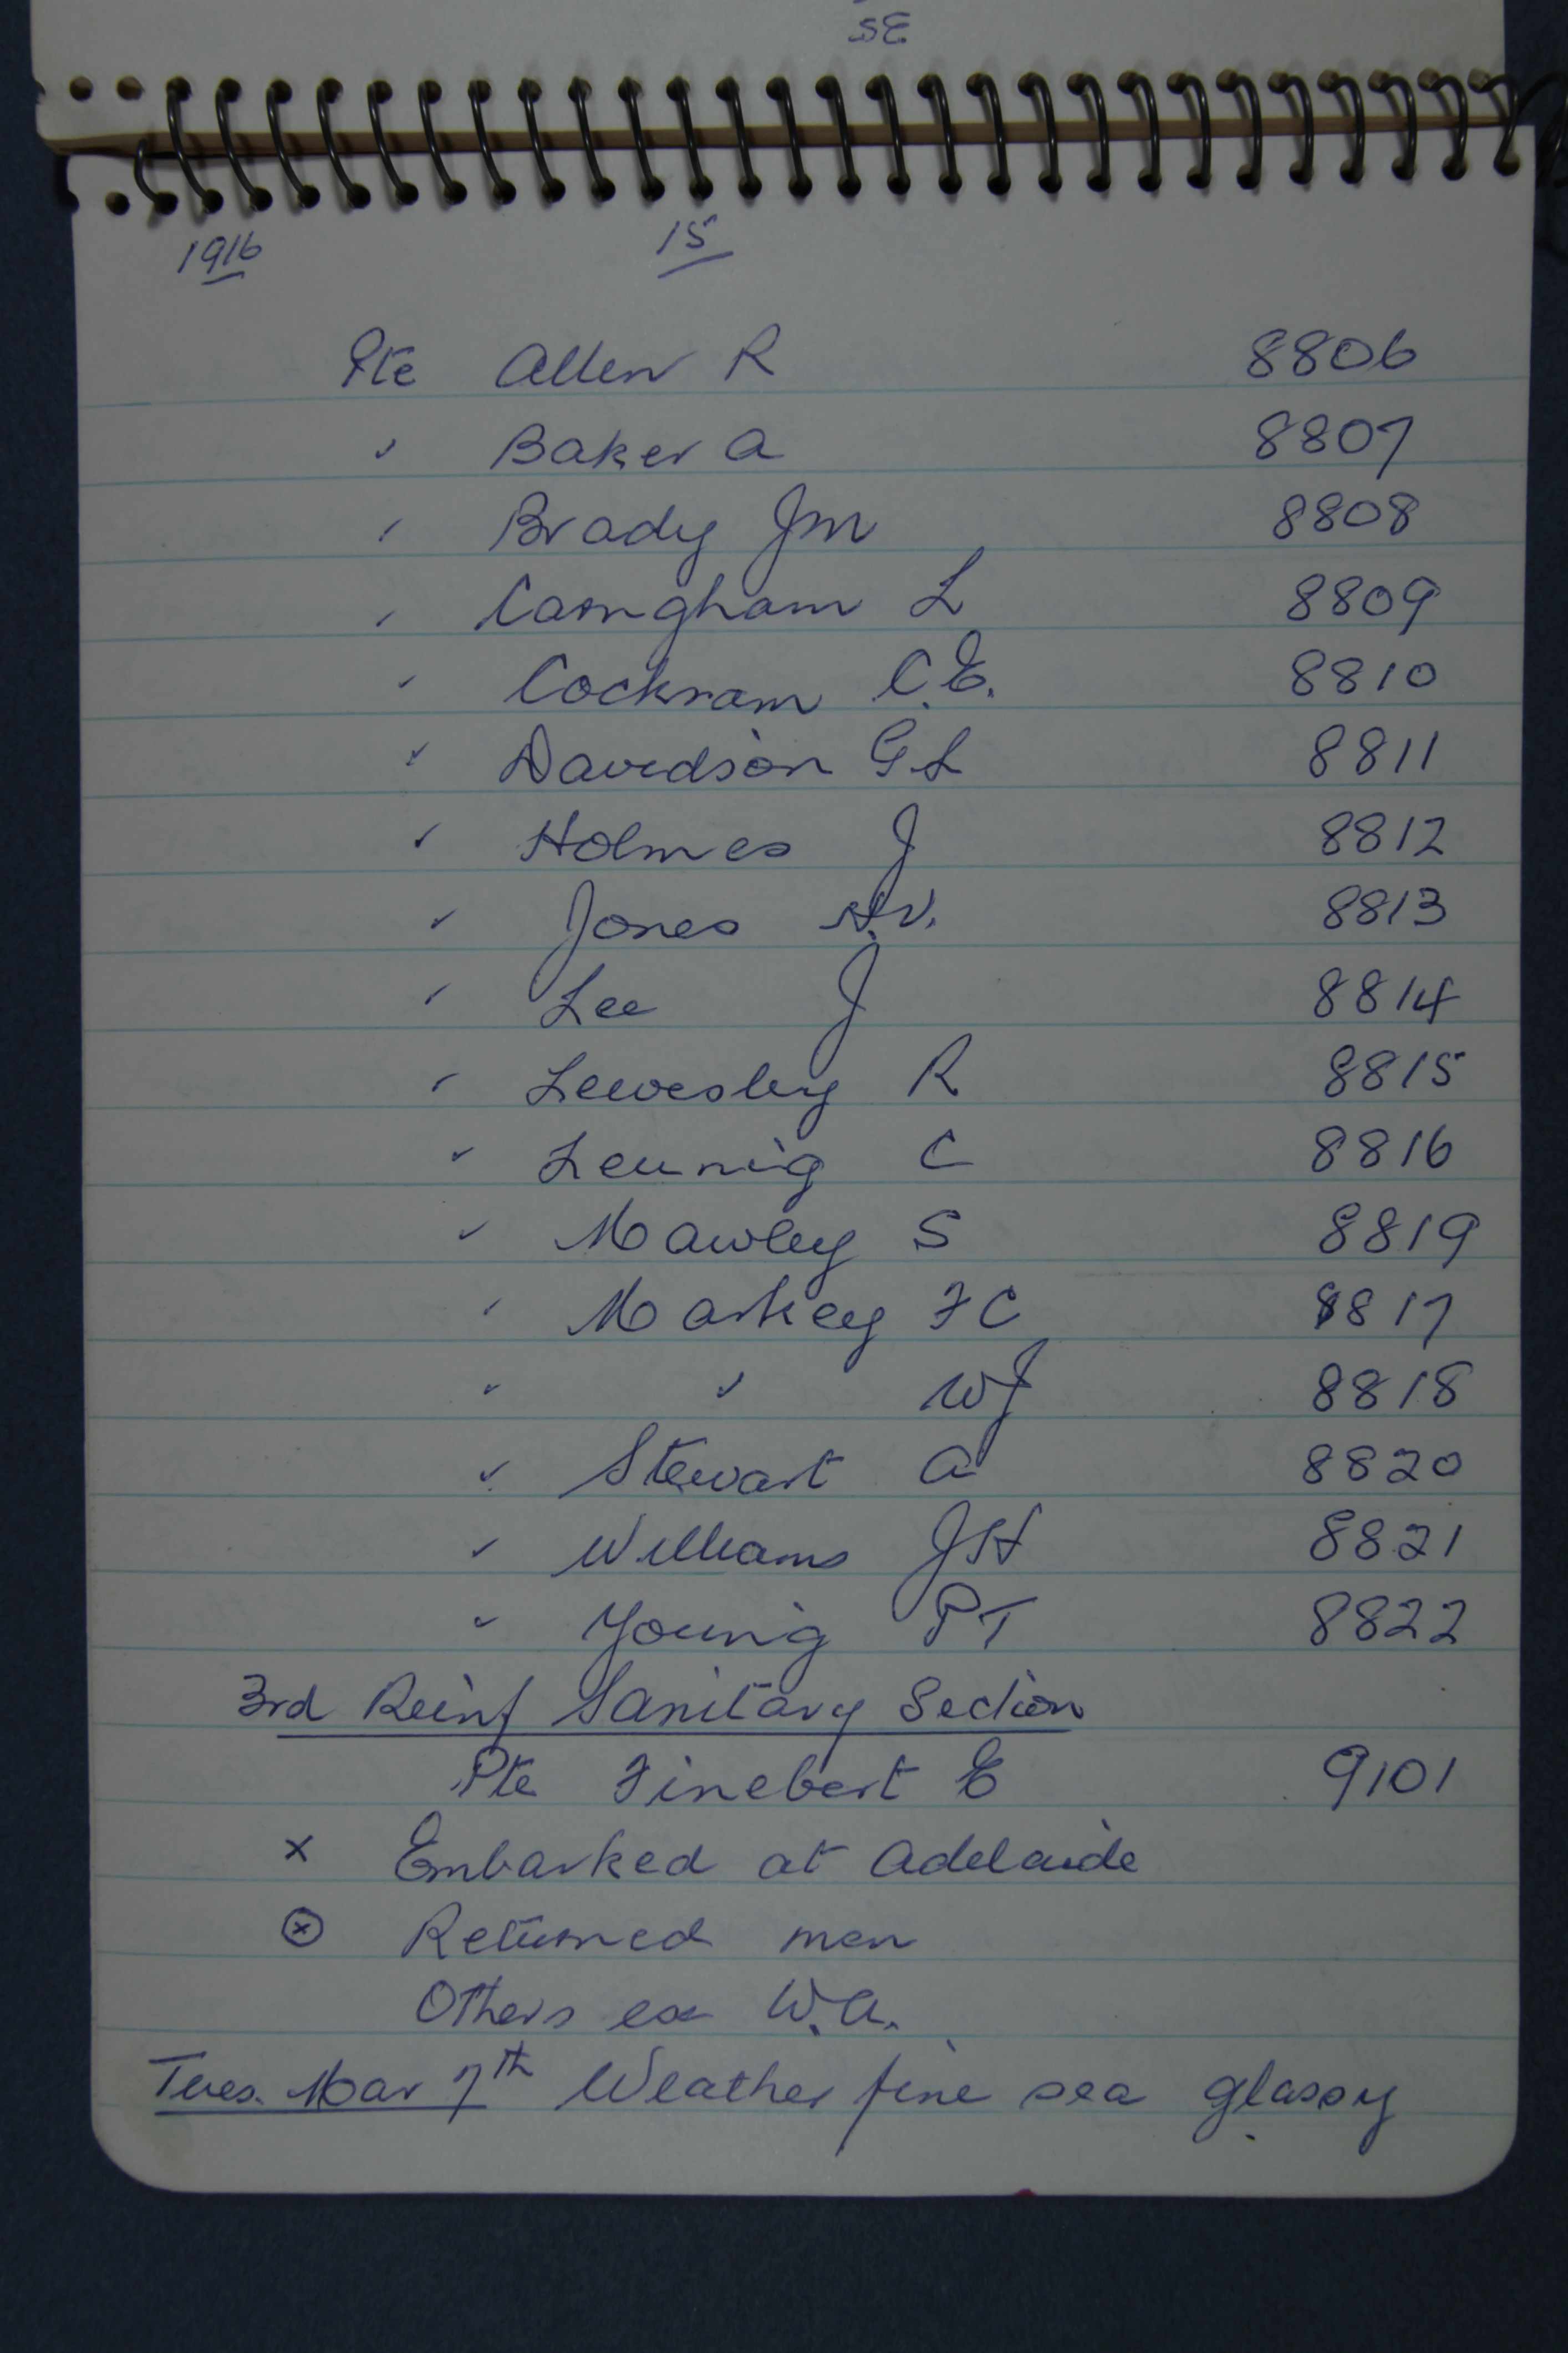 1916 15
Pte Allen R 8806
" Baker A 8807
" Brady JM 8808
" Carngham L 8809
" Cockram C.E. 8810
" Davidson G L 8811
" Holmes J 8812
" Jones H.V. 8813
" Lee J 8814
" Lewesley R 8815
" Leunig C 8816
" Mawley S 8819
" Markey FC 8817
" " WJ 8818
" Stewart A 8820
" Williams JH 8821
" Young PT 8822
3rd Reinf Sanitary Section
Pte Finebert E 9101
x Embarked at Adelaide
⊗ Returned men
Others ex W.A.
Tues. Mar 7th Weather fine sea glassy